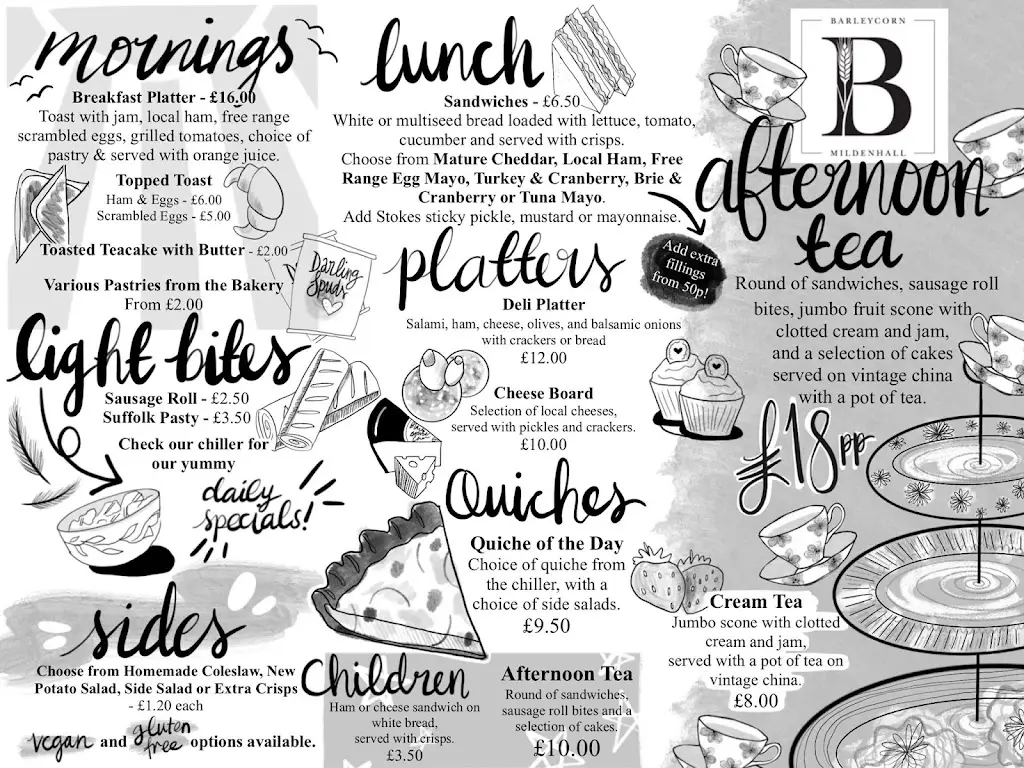 mornings
Breakfast Platter - £16.00
Toast with jam, local ham, free range
scrambled eggs, grilled tomatoes, choice of
pastry & served with orange juice.
Topped Toast
Ham & Eggs - £6.00
Scrambled Eggs - £5.00
Toasted Teacake with Butter - £2.00
Various Pastries from the Bakery
From £2.00
Darling
Spuds
light bites
Sausage Roll - £2.50
Suffolk Pasty - £3.50
Check our chiller for
our yummy
daily
specials!
sides
Choose from Homemade Coleslaw, New
Potato Salad, Side Salad or Extra Crisps
- £1.20 each
vegan and gluten free options available.
lunch
Sandwiches - £6.50
White or multiseed bread loaded with lettuce, tomato,
cucumber and served with crisps.
Choose from Mature Cheddar, Local Ham, Free
Range Egg Mayo, Turkey & Cranberry, Brie &
Cranberry or Tuna Mayo.
Add Stokes sticky pickle, mustard or mayonnaise.
Add extra
fillings
from 50p!
platters
Deli Platter
Salami, ham, cheese, olives, and balsamic onions
with crackers or bread
£12.00
Cheese Board
Selection of local cheeses,
served with pickles and crackers.
£10.00
Quiches
Quiche of the Day
Choice of quiche from
the chiller, with a
choice of side salads.
£9.50
Children
Ham or cheese sandwich on
white bread,
served with crisps.
£3.50
Afternoon Tea
Round of sandwiches,
sausage roll bites and a
selection of cakes.
£10.00
BARLEYCORN
B
MILDENHALL
afternoon
tea
Round of sandwiches, sausage roll
bites, jumbo fruit scone with
clotted cream and jam,
and a selection of cakes
served on vintage china
with a pot of tea.
£18pp
Cream Tea
Jumbo scone with clotted
cream and jam,
served with a pot of tea on
vintage china.
£8.00